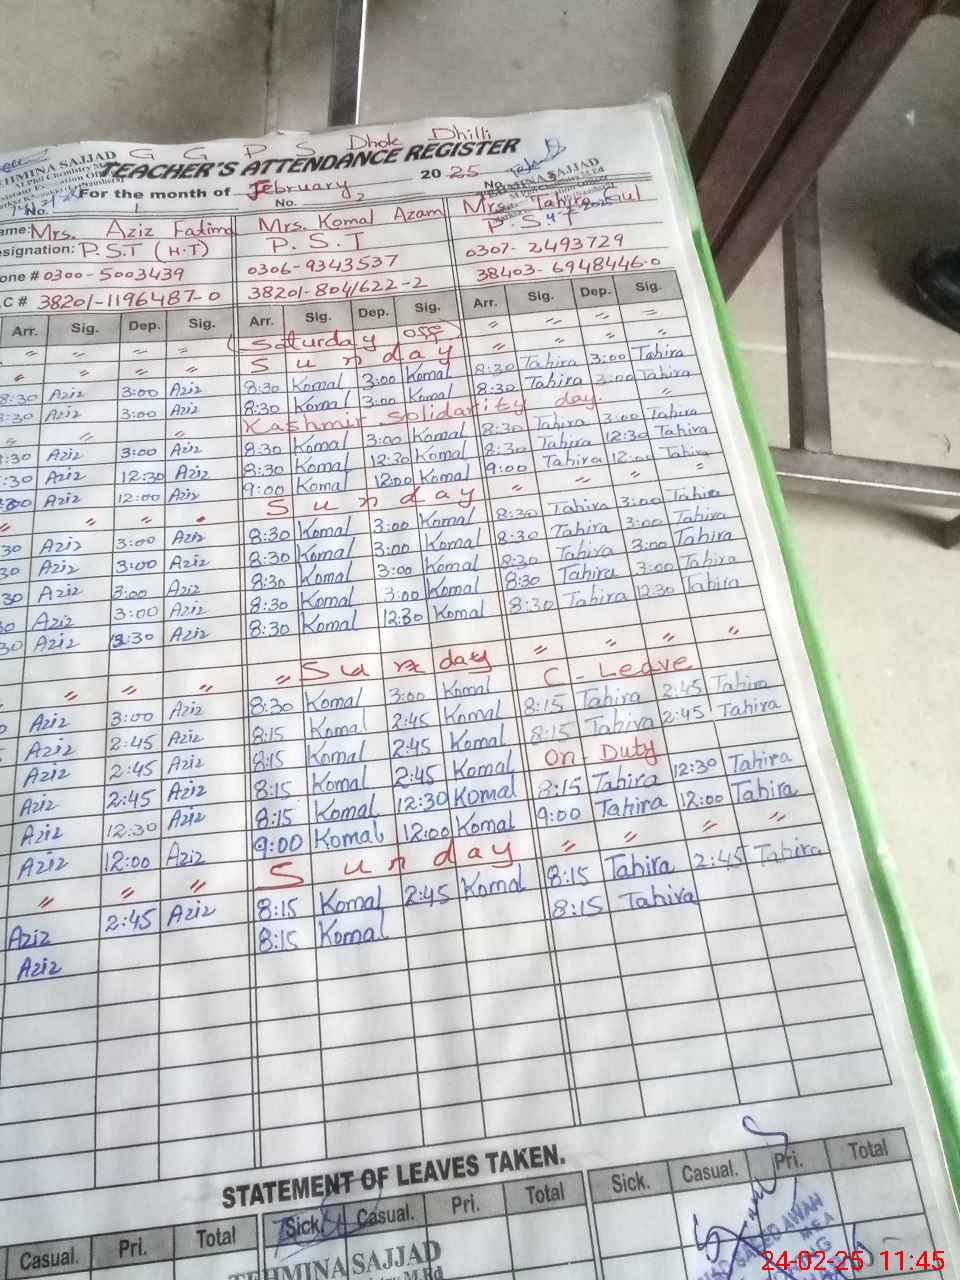 G G P S Dhok Dhilli
TEACHER'S ATTENDANCE REGISTER
TEHMINA SAJJAD
For the month of February 2025
No. 1 No. 2 No.
Name: Mrs. Aziz Fatima Mrs. Komal Azam Mrs. Tahira Gul
Designation: P.S.T (H.T) P.S.T P.S.T
Phone # 0300-5003439 0306-9343537 0307-2493729
C # 38201-1196487-0 38201-8041622-2 38403-6948446-0
Arr. Sig. Dep. Sig. Arr. Sig. Dep. Sig. Arr. Sig. Dep. Sig.
〃 〃 〃 〃 (Saturday off) 〃 〃 〃 〃
〃 〃 〃 〃 Sunday 〃 〃 〃 〃
8:30 Aziz 3:00 Aziz 8:30 Komal 3:00 Komal 8:30 Tahira 3:00 Tahira
8:30 Aziz 3:00 Aziz 8:30 Komal 3:00 Komal 8:30 Tahira 3:00 Tahira
〃 〃 〃 Kashmir Solidarity day. 〃
:30 Aziz 3:00 Aziz 8:30 Komal 3:00 Komal 8:30 Tahira 3:00 Tahira
:30 Aziz 12:30 Aziz 8:30 Komal 12:30 Komal 8:30 Tahira 12:30 Tahira
Aziz 12:00 Aziz 9:00 Komal 12:00 Komal 9:00 Tahira 12:00 Tahira
〃 〃 〃 Sunday 〃 〃 〃 〃
30 Aziz 3:00 Aziz 8:30 Komal 3:00 Komal 8:30 Tahira 3:00 Tahira
30 Aziz 3:00 Aziz 8:30 Komal 3:00 Komal 8:30 Tahira 3:00 Tahira
30 Aziz 3:00 Aziz 8:30 Komal 3:00 Komal 8:30 Tahira 3:00 Tahira
30 Aziz 3:00 Aziz 8:30 Komal 3:00 Komal 8:30 Tahira 3:00 Tahira
30 Aziz 12:30 Aziz 8:30 Komal 12:30 Komal 8:30 Tahira 12:30 Tahira
〃 〃 〃 〃 Sunday 〃 〃 〃 〃
Aziz 3:00 Aziz 8:30 Komal 3:00 Komal C-Leave
Aziz 2:45 Aziz 8:15 Komal 2:45 Komal 8:15 Tahira 2:45 Tahira
Aziz 2:45 Aziz 8:15 Komal 2:45 Komal 8:15 Tahira 2:45 Tahira
Aziz 2:45 Aziz 8:15 Komal 2:45 Komal On-Duty
Aziz 12:30 Aziz 8:15 Komal 12:30 Komal 8:15 Tahira 12:30 Tahira
Aziz 12:00 Aziz 9:00 Komal 12:00 Komal 9:00 Tahira 12:00 Tahira
〃 〃 〃 Sunday 〃 〃 〃 〃
Aziz 2:45 Aziz 8:15 Komal 2:45 Komal 8:15 Tahira 2:45 Tahira
Aziz 8:15 Komal 8:15 Tahira
STATEMENT OF LEAVES TAKEN.
Casual. Pri. Total Sick. Casual. Pri. Total Sick. Casual. Pri. Total
TEHMINA SAJJAD
24-02-25 11:45